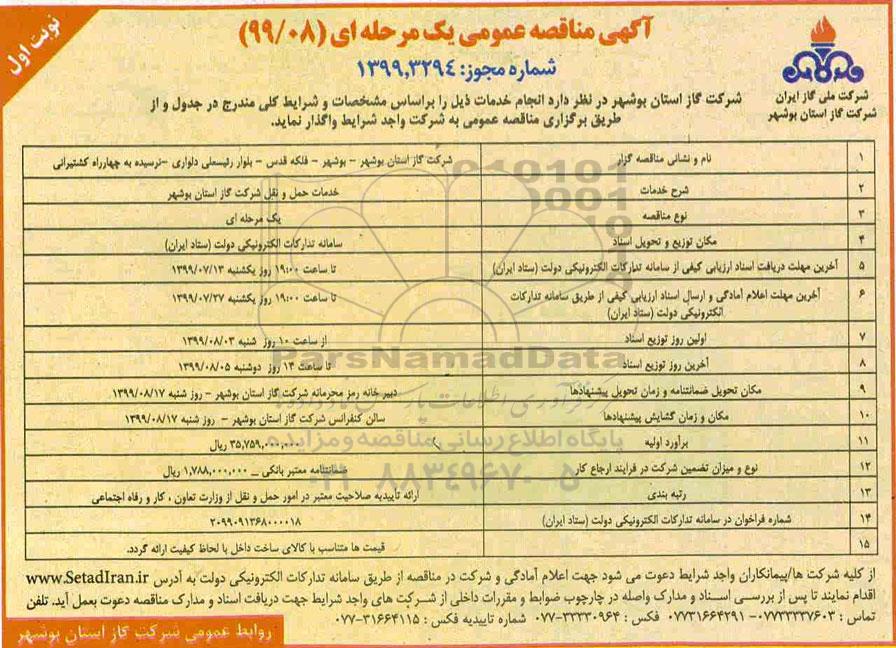 نوبت اول
آگهی مناقصه عمومی یک مرحله ای (۹۹/۰۸)
شماره مجوز: ۱۳۹۹,۳۲۹۴
شرکت ملی گاز ایران
شرکت گاز استان بوشهر
شرکت گاز استان بوشهر در نظر دارد انجام خدمات ذیل را براساس مشخصات و شرایط کلی مندرج در جدول و از
طریق برگزاری مناقصه عمومی به شرکت واجد شرایط واگذار نماید.
۱ نام و نشانی مناقصه گزار شرکت گاز استان بوشهر – بوشهر – فلکه قدس – بلوار رئیسعلی دلواری –نرسیده به چهارراه کشتیرانی
۲ شرح خدمات خدمات حمل و نقل شرکت گاز استان بوشهر
۳ نوع مناقصه یک مرحله ای
۴ مکان توزیع و تحویل اسناد سامانه تدارکات الکترونیکی دولت (ستاد ایران)
۵ آخرین مهلت دریافت اسناد ارزیابی کیفی از سامانه تدارکات الکترونیکی دولت (ستاد ایران) تا ساعت ۱۹:۰۰ روز یکشنبه ۱۳۹۹/۰۷/۱۳
۶ آخرین مهلت اعلام آمادگی و ارسال اسناد ارزیابی کیفی از طریق سامانه تدارکات تا ساعت ۱۹:۰۰ روز یکشنبه ۱۳۹۹/۰۷/۲۷
الکترونیکی دولت (ستاد ایران)
۷ اولین روز توزیع اسناد از ساعت ۱۰ روز شنبه ۱۳۹۹/۰۸/۰۳
۸ آخرین روز توزیع اسناد تا ساعت ۱۴ روز دوشنبه ۱۳۹۹/۰۸/۰۵
۹ مکان تحویل ضمانتنامه و زمان تحویل پیشنهادها دبیر خانه رمز محرمانه شرکت گاز استان بوشهر – روز شنبه ۱۳۹۹/۰۸/۱۷
۱۰ مکان و زمان گشایش پیشنهادها سالن کنفرانس شرکت گاز استان بوشهر – روز شنبه ۱۳۹۹/۰۸/۱۷
۱۱ برآورد اولیه ۳۵,۷۵۹,۰۰۰,۰۰۰ ریال
۱۲ نوع و میزان تضمین شرکت در فرایند ارجاع کار ضمانتنامه معتبر بانکی – ۱,۷۸۸,۰۰۰,۰۰۰ ریال
۱۳ رتبه بندی ارائه تأییدیه صلاحیت معتبر در امور حمل و نقل از وزارت تعاون ، کار و رفاه اجتماعی
۱۴ شماره فراخوان در سامانه تدارکات الکترونیکی دولت (ستاد ایران) ۲۰۹۹۰۹۱۳۶۸۰۰۰۰۱۸
۱۵ قیمت ها متناسب با کالای ساخت داخل با لحاظ کیفیت ارائه گردد.
ParsNamadData
پایگاه اطلاع رسانی مناقصه و مزایده
۰۲۱-۸۸۳۴۹۶۷۰-۵
از کلیه شرکت ها/پیمانکاران واجد شرایط دعوت می شود جهت اعلام آمادگی و شرکت در مناقصه از طریق سامانه تدارکات الکترونیکی دولت به آدرس www.SetadIran.ir
اقدام نمایند تا پس از بررسی اسناد و مدارک واصله در چارچوب ضوابط و مقررات داخلی از شرکت های واجد شرایط جهت دریافت اسناد و مدارک مناقصه دعوت بعمل آید. تلفن
تماس : ۰۷۷۳۳۳۳۷۶۰۳ – ۰۷۷۳۱۶۶۴۲۹۱ فکس : ۳۳۳۳۰۹۶۴-۰۷۷ شماره تاییدیه فکس : ۳۱۶۶۴۱۱۵-۰۷۷
روابط عمومی شرکت گاز استان بوشهر